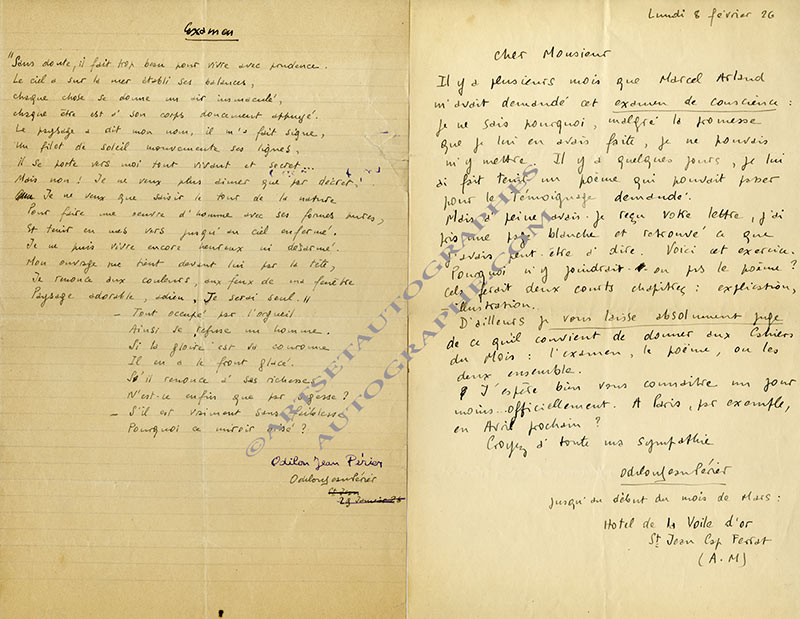 Examen
"Sans doute, il fait trop beau pour vivre avec prudence.
Le ciel a sur la mer établi ses balances,
chaque chose se donne un air immaculé,
chaque être est à son corps doucement appuyé.
Le paysage a dit mon nom, il m'a fait signe,
Un filet de soleil mouvemente ses lignes,
Il se porte vers moi tout vivant et secret...
Mais non! Je ne veux plus aimer que par décret!
Je ne veux que saisir le tour de la nature
Pour faire une oeuvre d'homme avec ses formes pures,
Et tenir en mes vers jusqu'au ciel enfermé.
Je ne puis vivre encore heureux ni désarmé.
Mon ouvrage me tient devant lui par la tête,
Je renonce aux couleurs, aux feux de ma fenêtre
Paysage adorable, adieu, Je serai seul."
- Tout occupé par l'orgueil
Ainsi se refuse un homme.
Si la gloire est sa couronne
Il en a le front glacé.
S'il renonce à ses richesses
N'est-ce enfin que par sagesse?
- S'il est vraiment sans faiblesse
Pourquoi ce miroir brisé?
Odilon Jean Périer
Odilon Jean Périer
Lundi 8 février 26
Cher Monsieur
Il y a plusieurs mois que Marcel Arland
m'avait demandé cet examen de conscience:
je ne sais pourquoi, malgré la promesse
que je lui en avais faite, je ne pouvais
m'y mettre. Il y a quelques jours, je lui
ai fait tenir un poème qui pouvait passer
pour le témoignage demandé.
Mais à peine avais-je reçu votre lettre, j'ai
pris une page blanche et retrouvé ce que
j'avais peut-être à dire. Voici cet exercice.
Pourquoi n'y joindrait-on pas le poème?
cela ferait deux courts chapitres: explication,
illustration.
D'ailleurs je vous laisse absolument juge
de ce qu'il convient de donner aux Cahiers
du Mois: l'examen, le poème, ou les
deux ensemble.
J'espère bien vous connaître un jour
moins officiellement. A Paris, par exemple,
en Avril prochain?
Croyez à toute ma sympathie
Odilon Jean Périer
jusqu'au début du mois de Mars:
Hotel de la Voile d'or
St Jean Cap Ferrat
(A.M)
©ARTSETAUTOGRAPHES
AUTOGRAPHE.COM